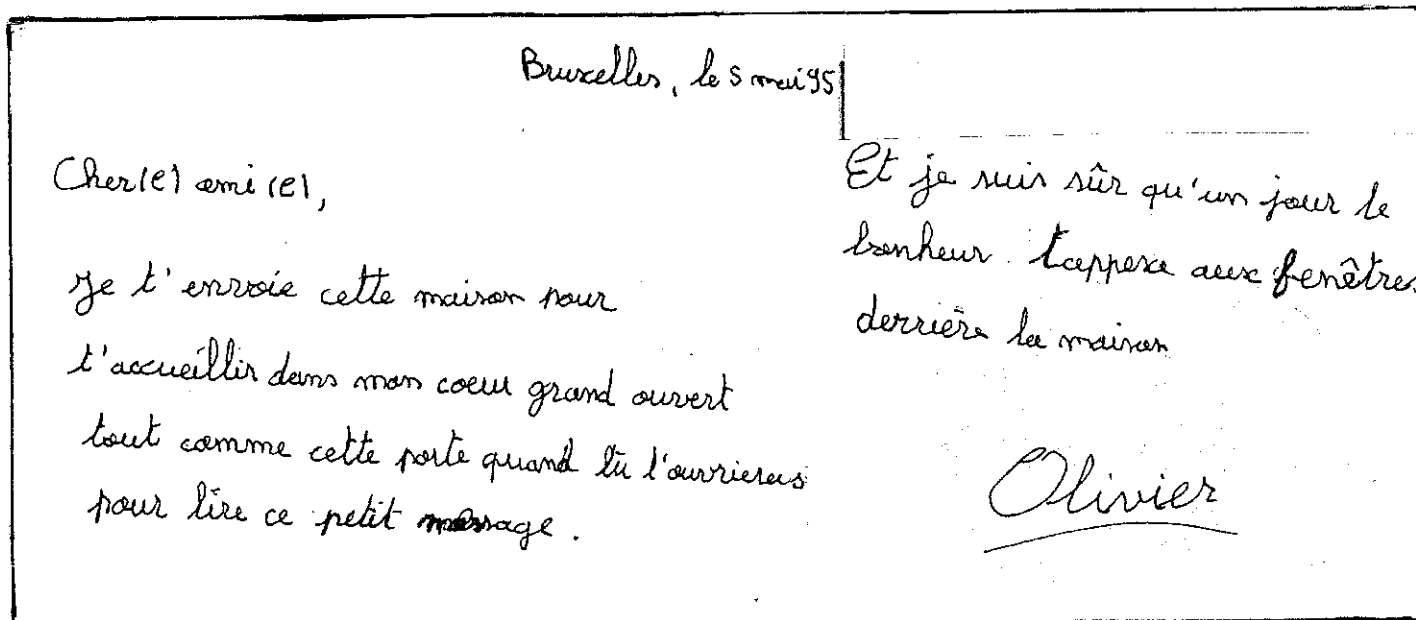 Bruxelles, le 5 mai 95
Cher(e) ami(e),
Je t'envoie cette maison pour
t'accueillir dans mon coeur grand ouvert
tout comme cette porte quand tu l'ouvrieras
pour lire ce petit message.
Et je suis sûr qu'un jour le
bonheur tappera aux fenêtres
derrière la maison
Olivier